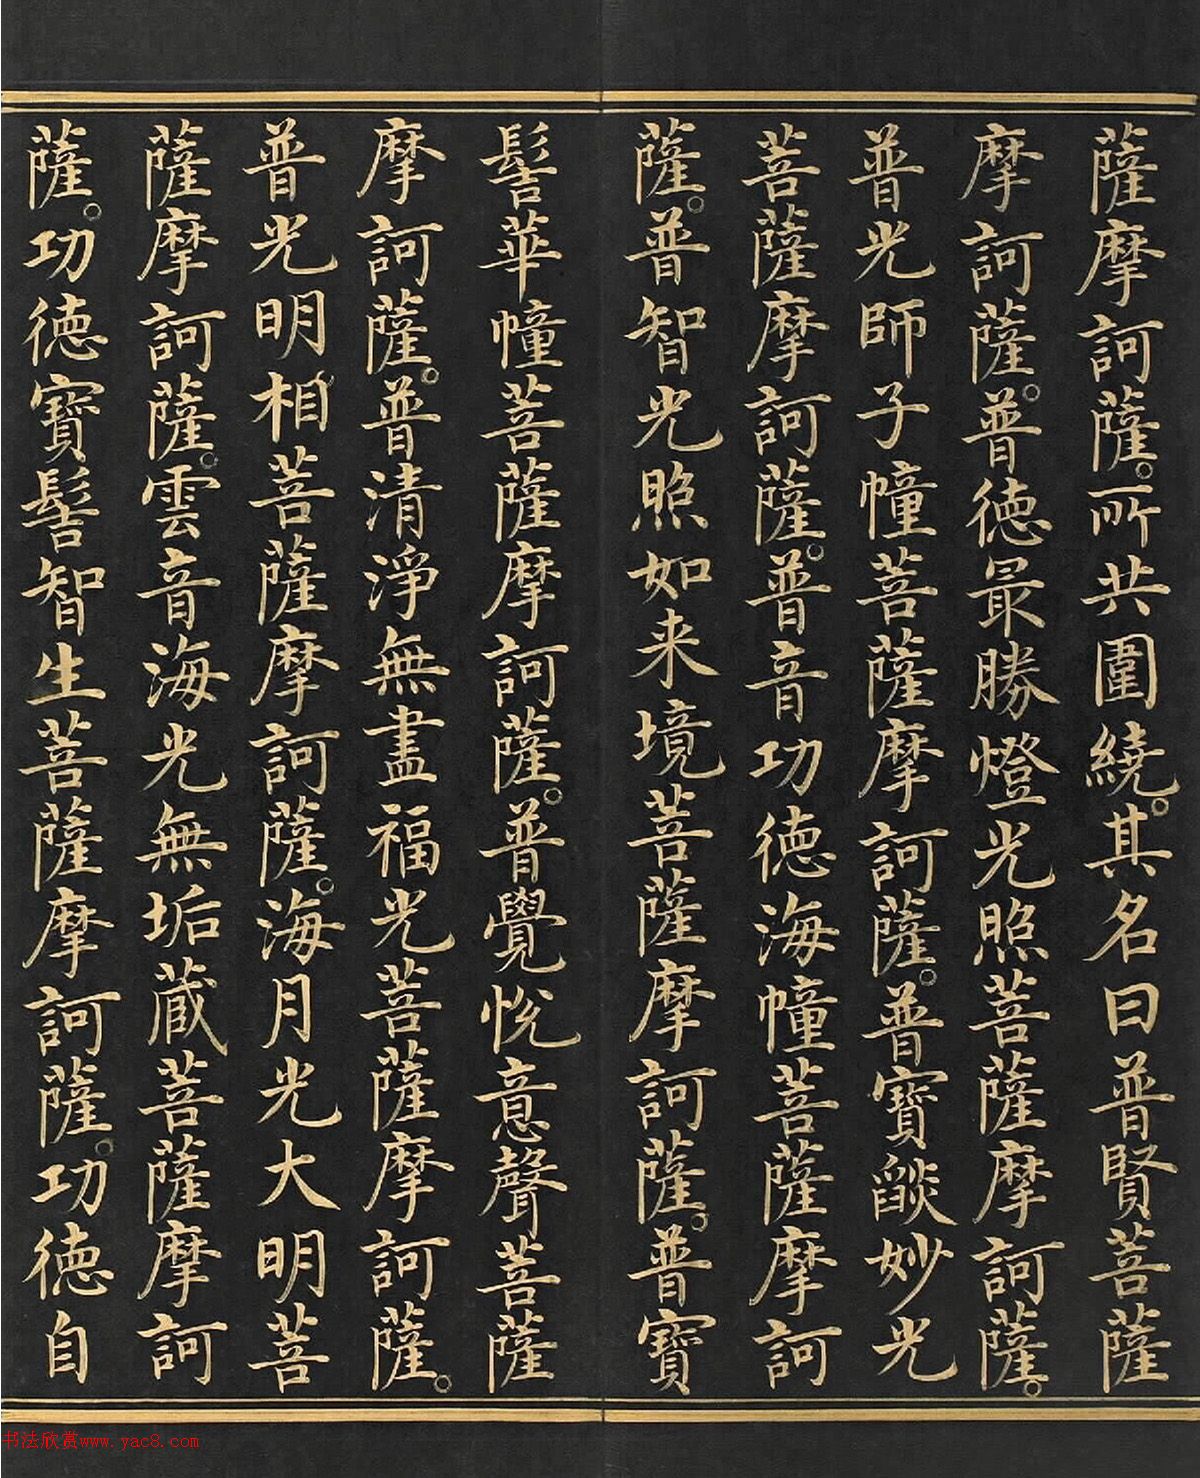 薩摩訶薩。所共圍繞。其名曰普賢菩薩
摩訶薩。普德最勝燈光照菩薩摩訶薩。
普光師子幢菩薩摩訶薩。普寶燄妙光
菩薩摩訶薩。普音功德海幢菩薩摩訶
薩。普智光照如来境菩薩摩訶薩。普寶
髻華幢菩薩摩訶薩。普覺悅意聲菩薩
摩訶薩。普清淨無盡福光菩薩摩訶薩。
普光明相菩薩摩訶薩。海月光大明菩
薩摩訶薩。雲音海光無垢藏菩薩摩訶
薩。功德寶髻智生菩薩摩訶薩。功德自
书法欣赏www.yac8.com